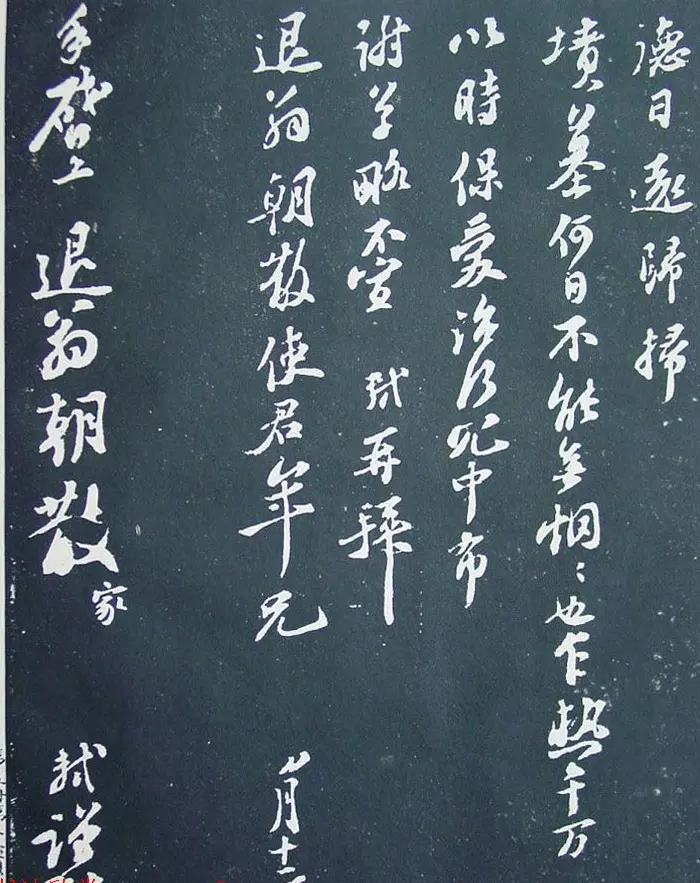 德日遠歸掃
墳墓何日不能無惘〻也乍熱千万
以時保愛治行冗中布
謝草略不宣 軾再拜
退翁朝散使君年兄 月十
手啓上 退翁朝散家 軾謹